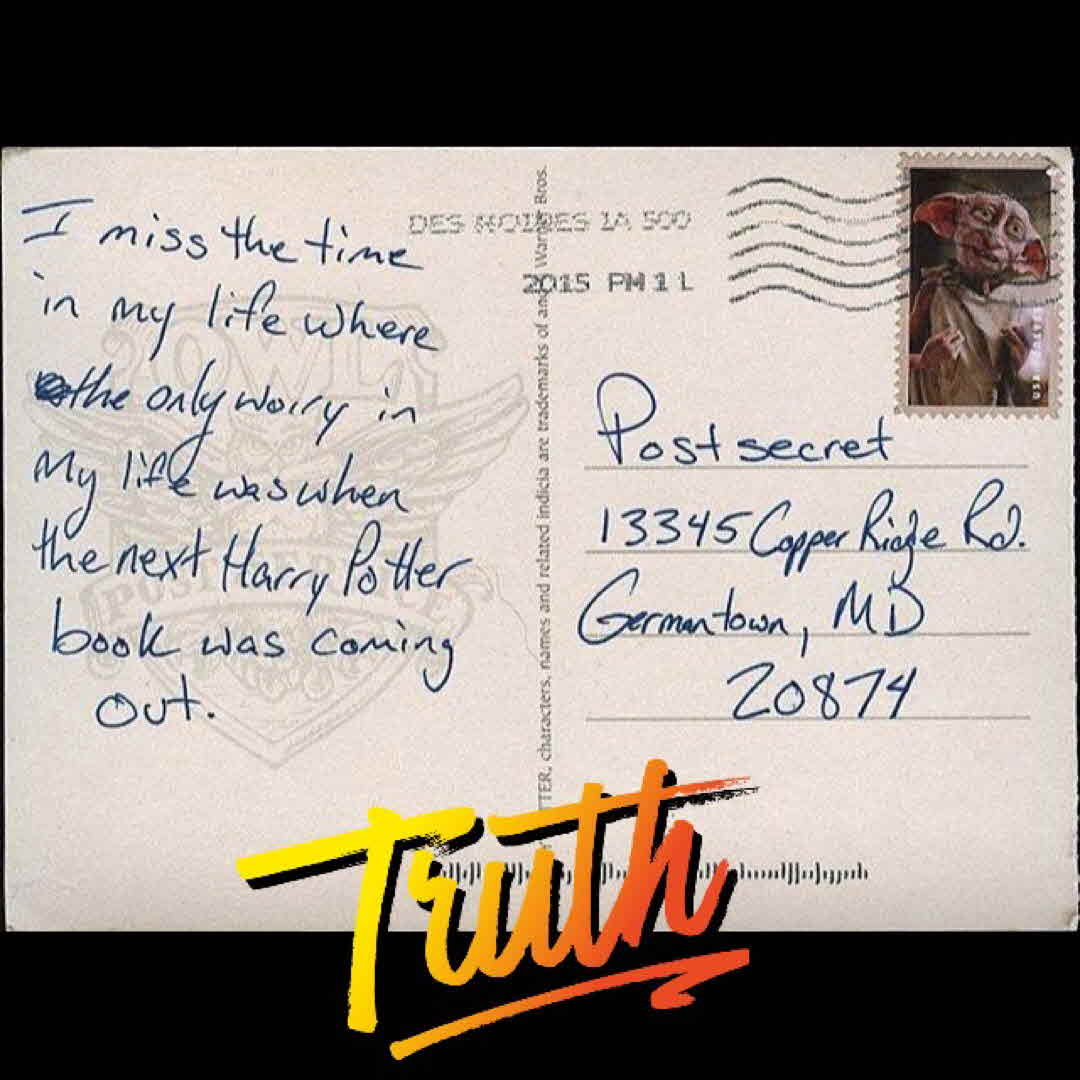 I miss the time
in my life where
the only worry in
my life was when
the next Harry Potter
book was coming
out.
DES MOINES IA 500
2015 PM 1 L
TTER, characters, names and related indicia are trademarks of and Warner Bros.
OWL
POST
USA
Postsecret
13345 Copper Ridge Rd.
Germantown, MD
20874
Truth